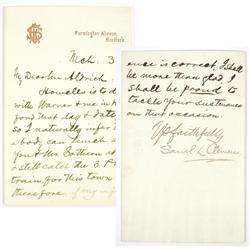 Farmington Avenue,
Hartford.
Mch. 3
My Dear Mr. Aldrich
Howells is to d
with Warner & me in H
ford that day & date
so I naturally infer
a body can lunch a
you & Mrs.
& still catch the 3 P.
train for this town
therefore, if my inf
ence is correct, I shall
be more than glad, I
shall be proud to
tackle your sustenance
on that occasion.
Yrs faithfully
Saml L. Clemens